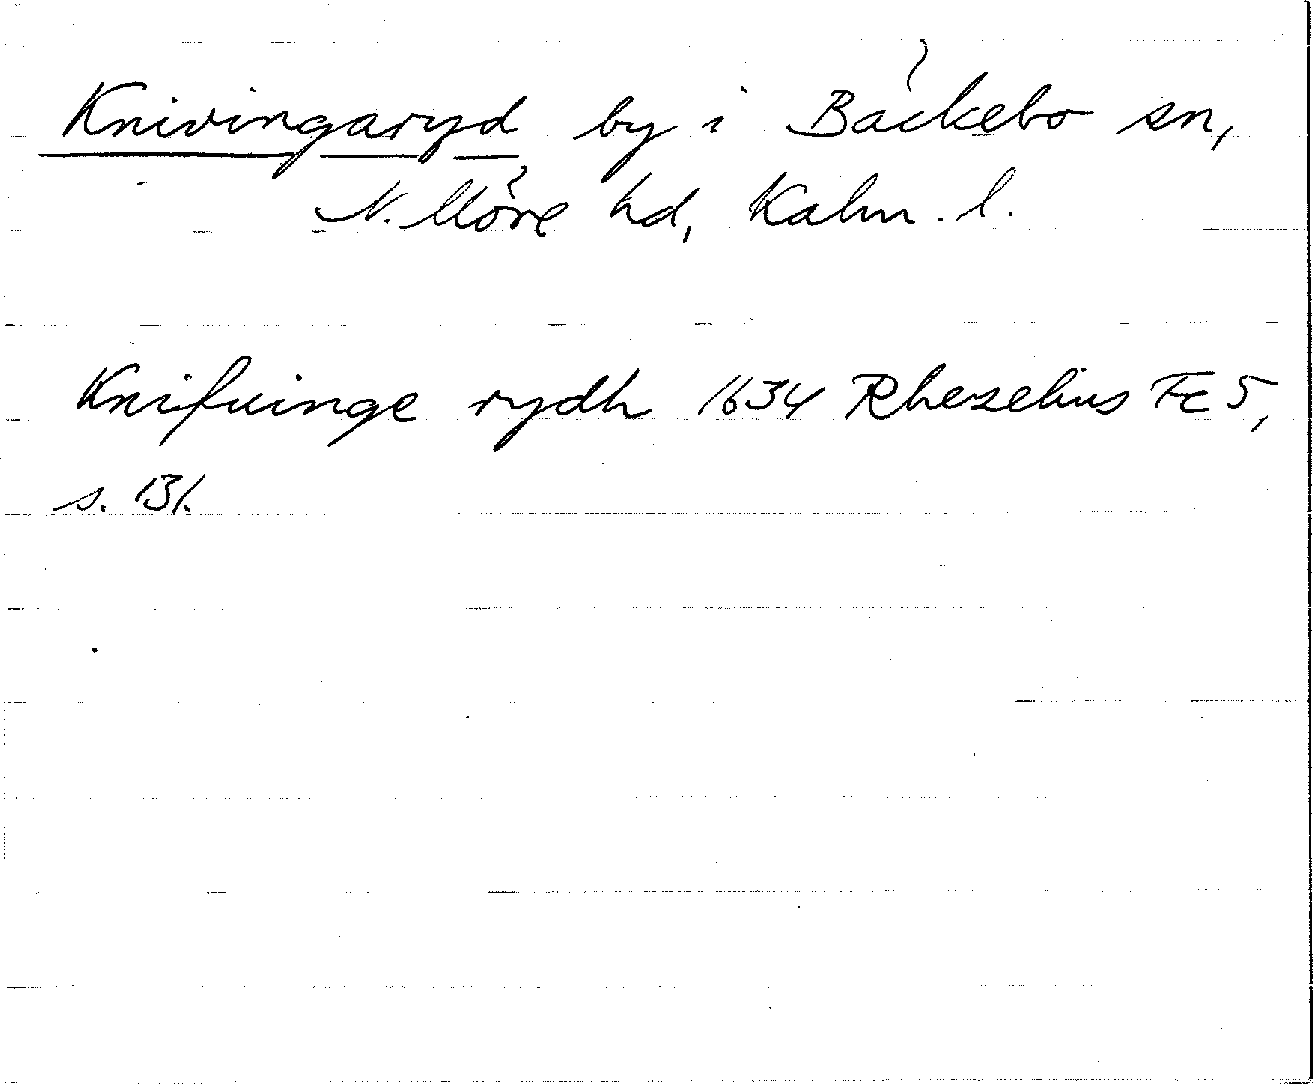 Knivingaryd by i Bäckebo sn,
N. Möre hd, Kalm. l.
Knifuinge rydh 1634 Rhezelius Fc 5,
s. 131.